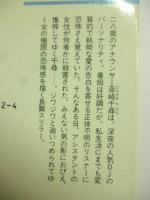 二八歳のアナウンサー韮崎千尋は、深夜の人気DJの
パーソナリティ。番組は好調だが、私生活にまでも変
質的で執拗な愛の告白を寄せる正体不明のリスナーに
恐怖さえ覚えていた。そんなある日、アシスタントの
女性が何者かに殺害された。みえない男の影におびえ、
憔悴してゆく千尋……。ジワジワと追いつめられてゆ
く女の極限の恐怖感を描く長篇スリラー。
2-4